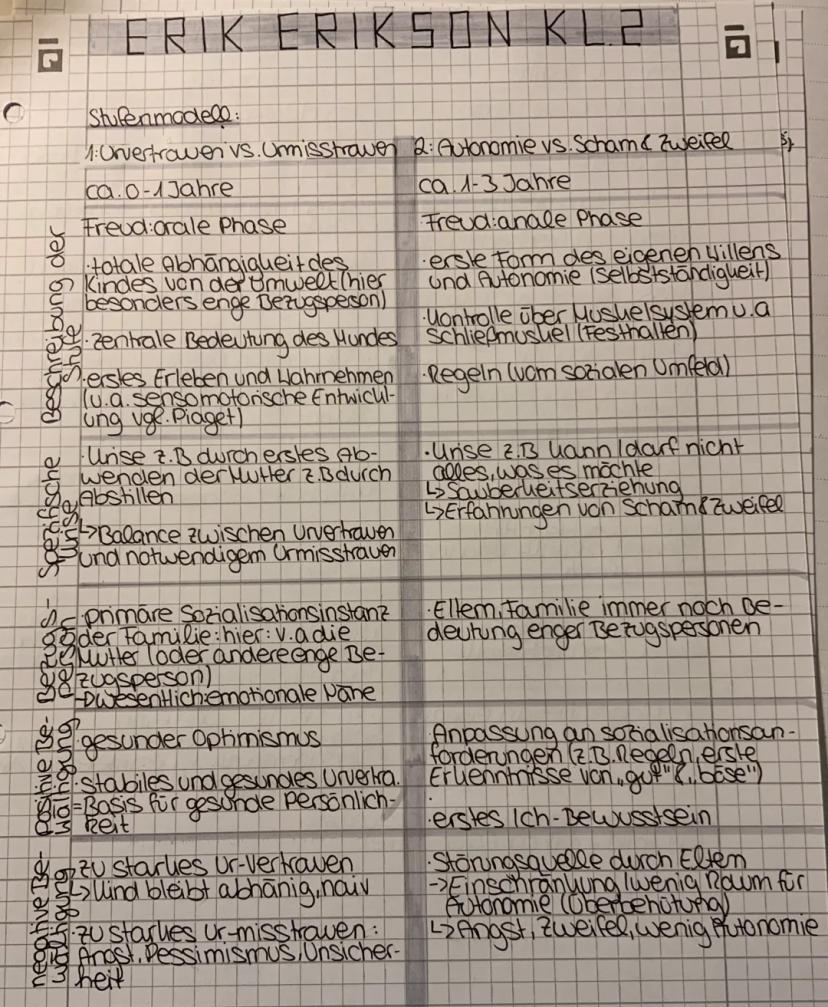 ERIK ERIKSON KL.2
Stufenmodell:
1: Urvertrauen vs. Urmisstrauen
ca. 0-1 Jahre
Freud: orale Phase
Beschreibung der
Stufe
·totale Abhängigkeit des
Kindes von der Umwelt (hier
besonders enge Bezugsperson)
·zentrale Bedeutung des Mundes
·erstes Erleben und Wahrnehmen
(u.a. sensomotorische Entwickl-
ung vgl. Piaget)
Spezifische
Krise
·Krise z.B durch erstes Ab-
wenden der Mutter z.B durch
Abstillen
↳Balance zwischen Urvertrauen
und notwendigem Urmisstrauen
primäre Sozialisationsinstanz
der Familie: hier: v.a die
Mutter (oder andere enge Be-
zugsperson)
→wesentlich: emotionale Nähe
positive Be-
wältigung
gesunder Optimismus
·stabiles und gesundes Urvertra.
=Basis für gesunde Persönlich-
keit
negative Be-
wältigung
·zu starkes Ur-Vertrauen
↳Kind bleibt abhänig, naiv
·zu starkes Ur-misstrauen:
Angst, Pessimismus, Unsicher-
heit
2: Autonomie vs. Scham & Zweifel
ca. 1-3 Jahre
Freud: anale Phase
·erste Form des eigenen Willens
und Autonomie (Selbstständigkeit)
·Kontrolle über Muskelsystem u.a
Schließmuskel (Festhalten)
·Regeln (vom sozialen Umfeld)
·Krise z.B kann/darf nicht
alles, was es möchte
↳Sauberkeitserziehung
↳Erfahrungen von Scham & Zweifel
·Eltern, Familie immer noch Be-
deutung enger Bezugspersonen
·Anpassung an sozialisationsan-
forderungen (z.B. Regeln, erste
Erkenntnisse von „gut" & „böse")
·erstes Ich-Bewusstsein
·Störungsquelle durch Eltern
→Einschränkung/wenig Raum für
Autonomie (Überbehütung)
↳Angst, Zweifel, wenig Autonomie